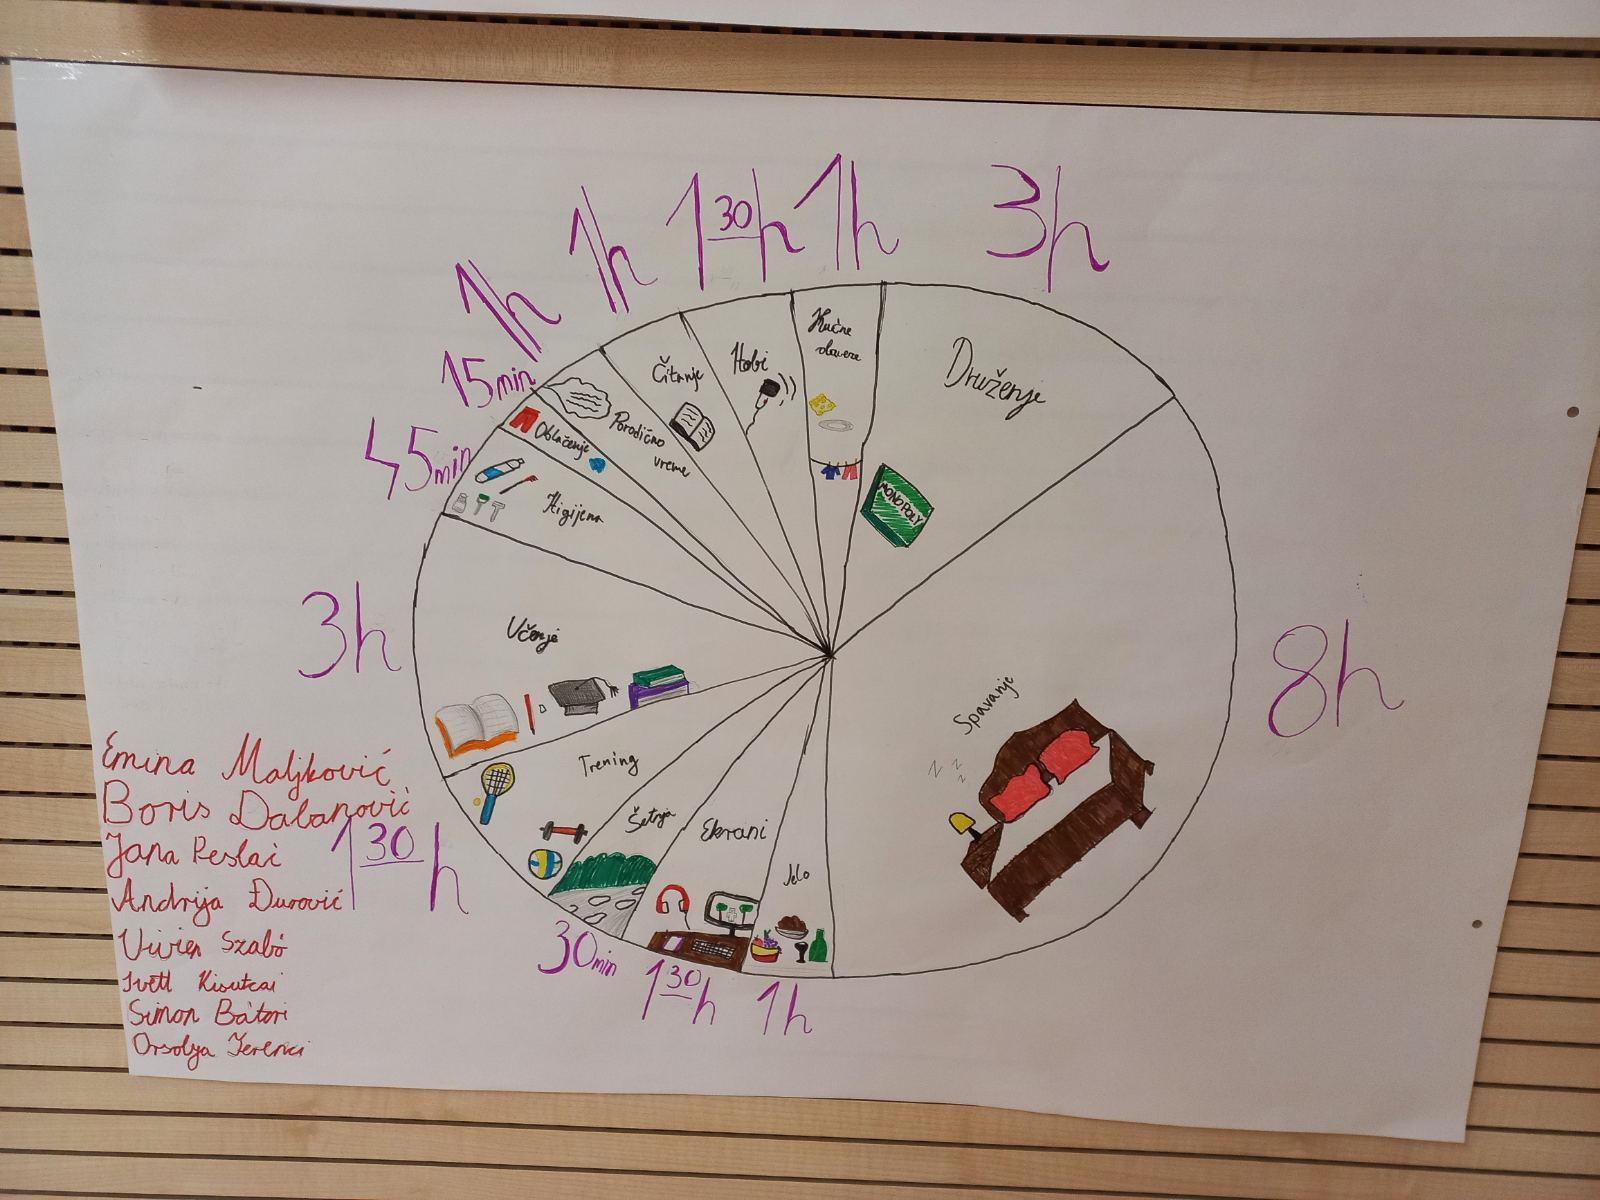 3h
1h
1 30 h
1h
1h
15min
45min
3h
8h
1 30 h
30min
1 30 h
1h
Druženje
MONOPOLY
Kućne
obaveze
Hobi
Čitanje
Porodično
vreme
Oblačenje
Higijena
Učenje
Trening
Šetnja
Ekrani
Jelo
Spavanje
z z z z
Emina Maljković
Boris Dabanović
Jana Peslać
Andrija Đurović
Vivien Szabó
Ivett
Simon Bátori
Orsolya Ferenci